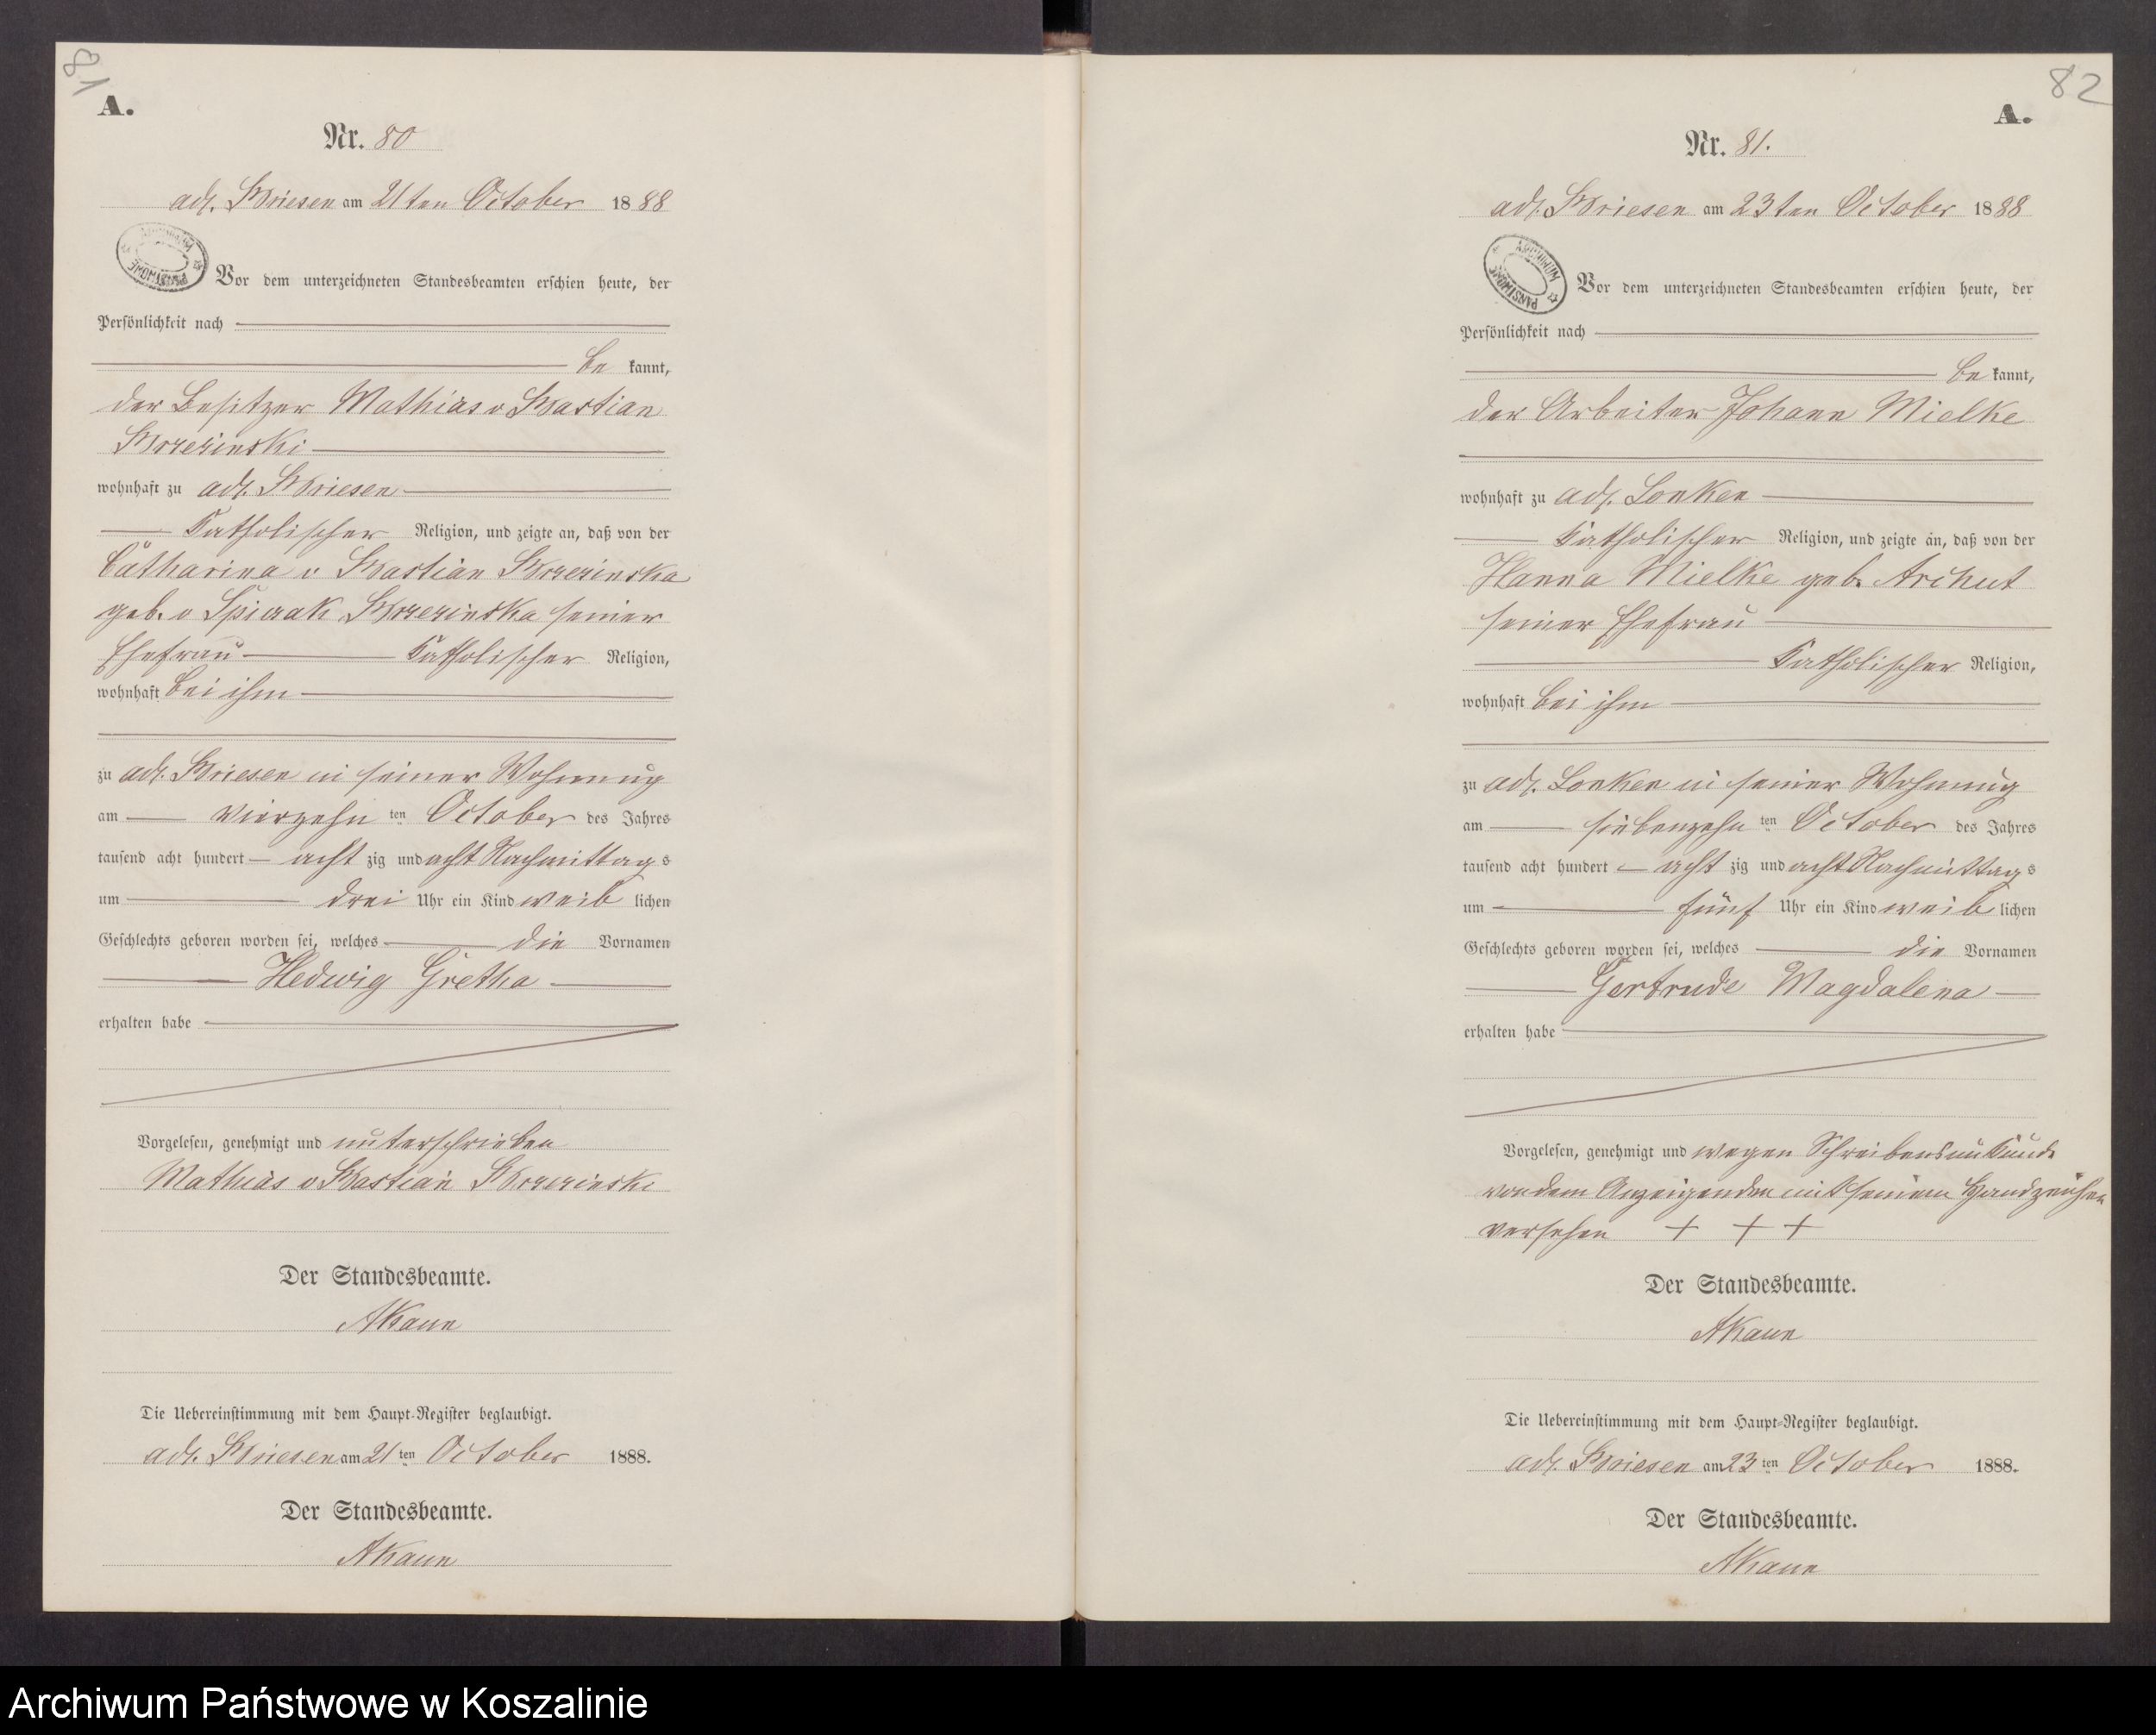 81
A.
Nr. 80
adl. Briesen am 21ten October 1888
ARCHIWUM PAŃSTWOWE
Vor dem unterzeichneten Standesbeamten erschien heute, der
Persönlichkeit nach
be kannt,
der Besitzer Mathias v Bastian
Brzezinski
wohnhaft zu adl. Briesen
Katholischer Religion, und zeigte an, daß von der
Catharina v Bastian Brzezinska
geb. v Brzezinska seiner
Ehefrau Katholischer Religion,
wohnhaft bei ihm
zu adl. Briesen in seiner Wohnung
am vierzehn ten October des Jahres
tausend acht hundert acht zig und acht Nachmittags
um drei Uhr ein Kind weib lichen
Geschlechts geboren worden sei, welches die Vornamen
Hedwig Gretha
erhalten habe
Vorgelesen, genehmigt und unterschrieben
Mathias v Bastian Brzezinski
Der Standesbeamte.
AKaun
Die Uebereinstimmung mit dem Haupt-Register beglaubigt.
adl. Briesen am 21ten October 1888.
Der Standesbeamte.
AKaun
82
A.
Nr. 81.
adl. Briesen am 23ten October 1888
ARCHIWUM PAŃSTWOWE
Vor dem unterzeichneten Standesbeamten erschien heute, der
Persönlichkeit nach
be kannt,
der Arbeiter Johann Mielke
wohnhaft zu adl. Lonken
Katholischer Religion, und zeigte an, daß von der
Hanna Mielke geb. Archut
seiner Ehefrau
Katholischer Religion,
wohnhaft bei ihm
zu adl. Lonken in seiner Wohnung
am siebenzehn ten October des Jahres
tausend acht hundert acht zig und acht Nachmittags
um fünf Uhr ein Kind weib lichen
Geschlechts geboren worden sei, welches die Vornamen
Gertrude Magdalena
erhalten habe
Vorgelesen, genehmigt und wegen Schreibensunkunde
von dem Anzeigenden mit seinem Handzeichen
versehen + + +
Der Standesbeamte.
AKaun
Die Uebereinstimmung mit dem Haupt-Register beglaubigt.
adl. Briesen am 23ten October 1888.
Der Standesbeamte.
AKaun
Archiwum Państwowe w Koszalinie